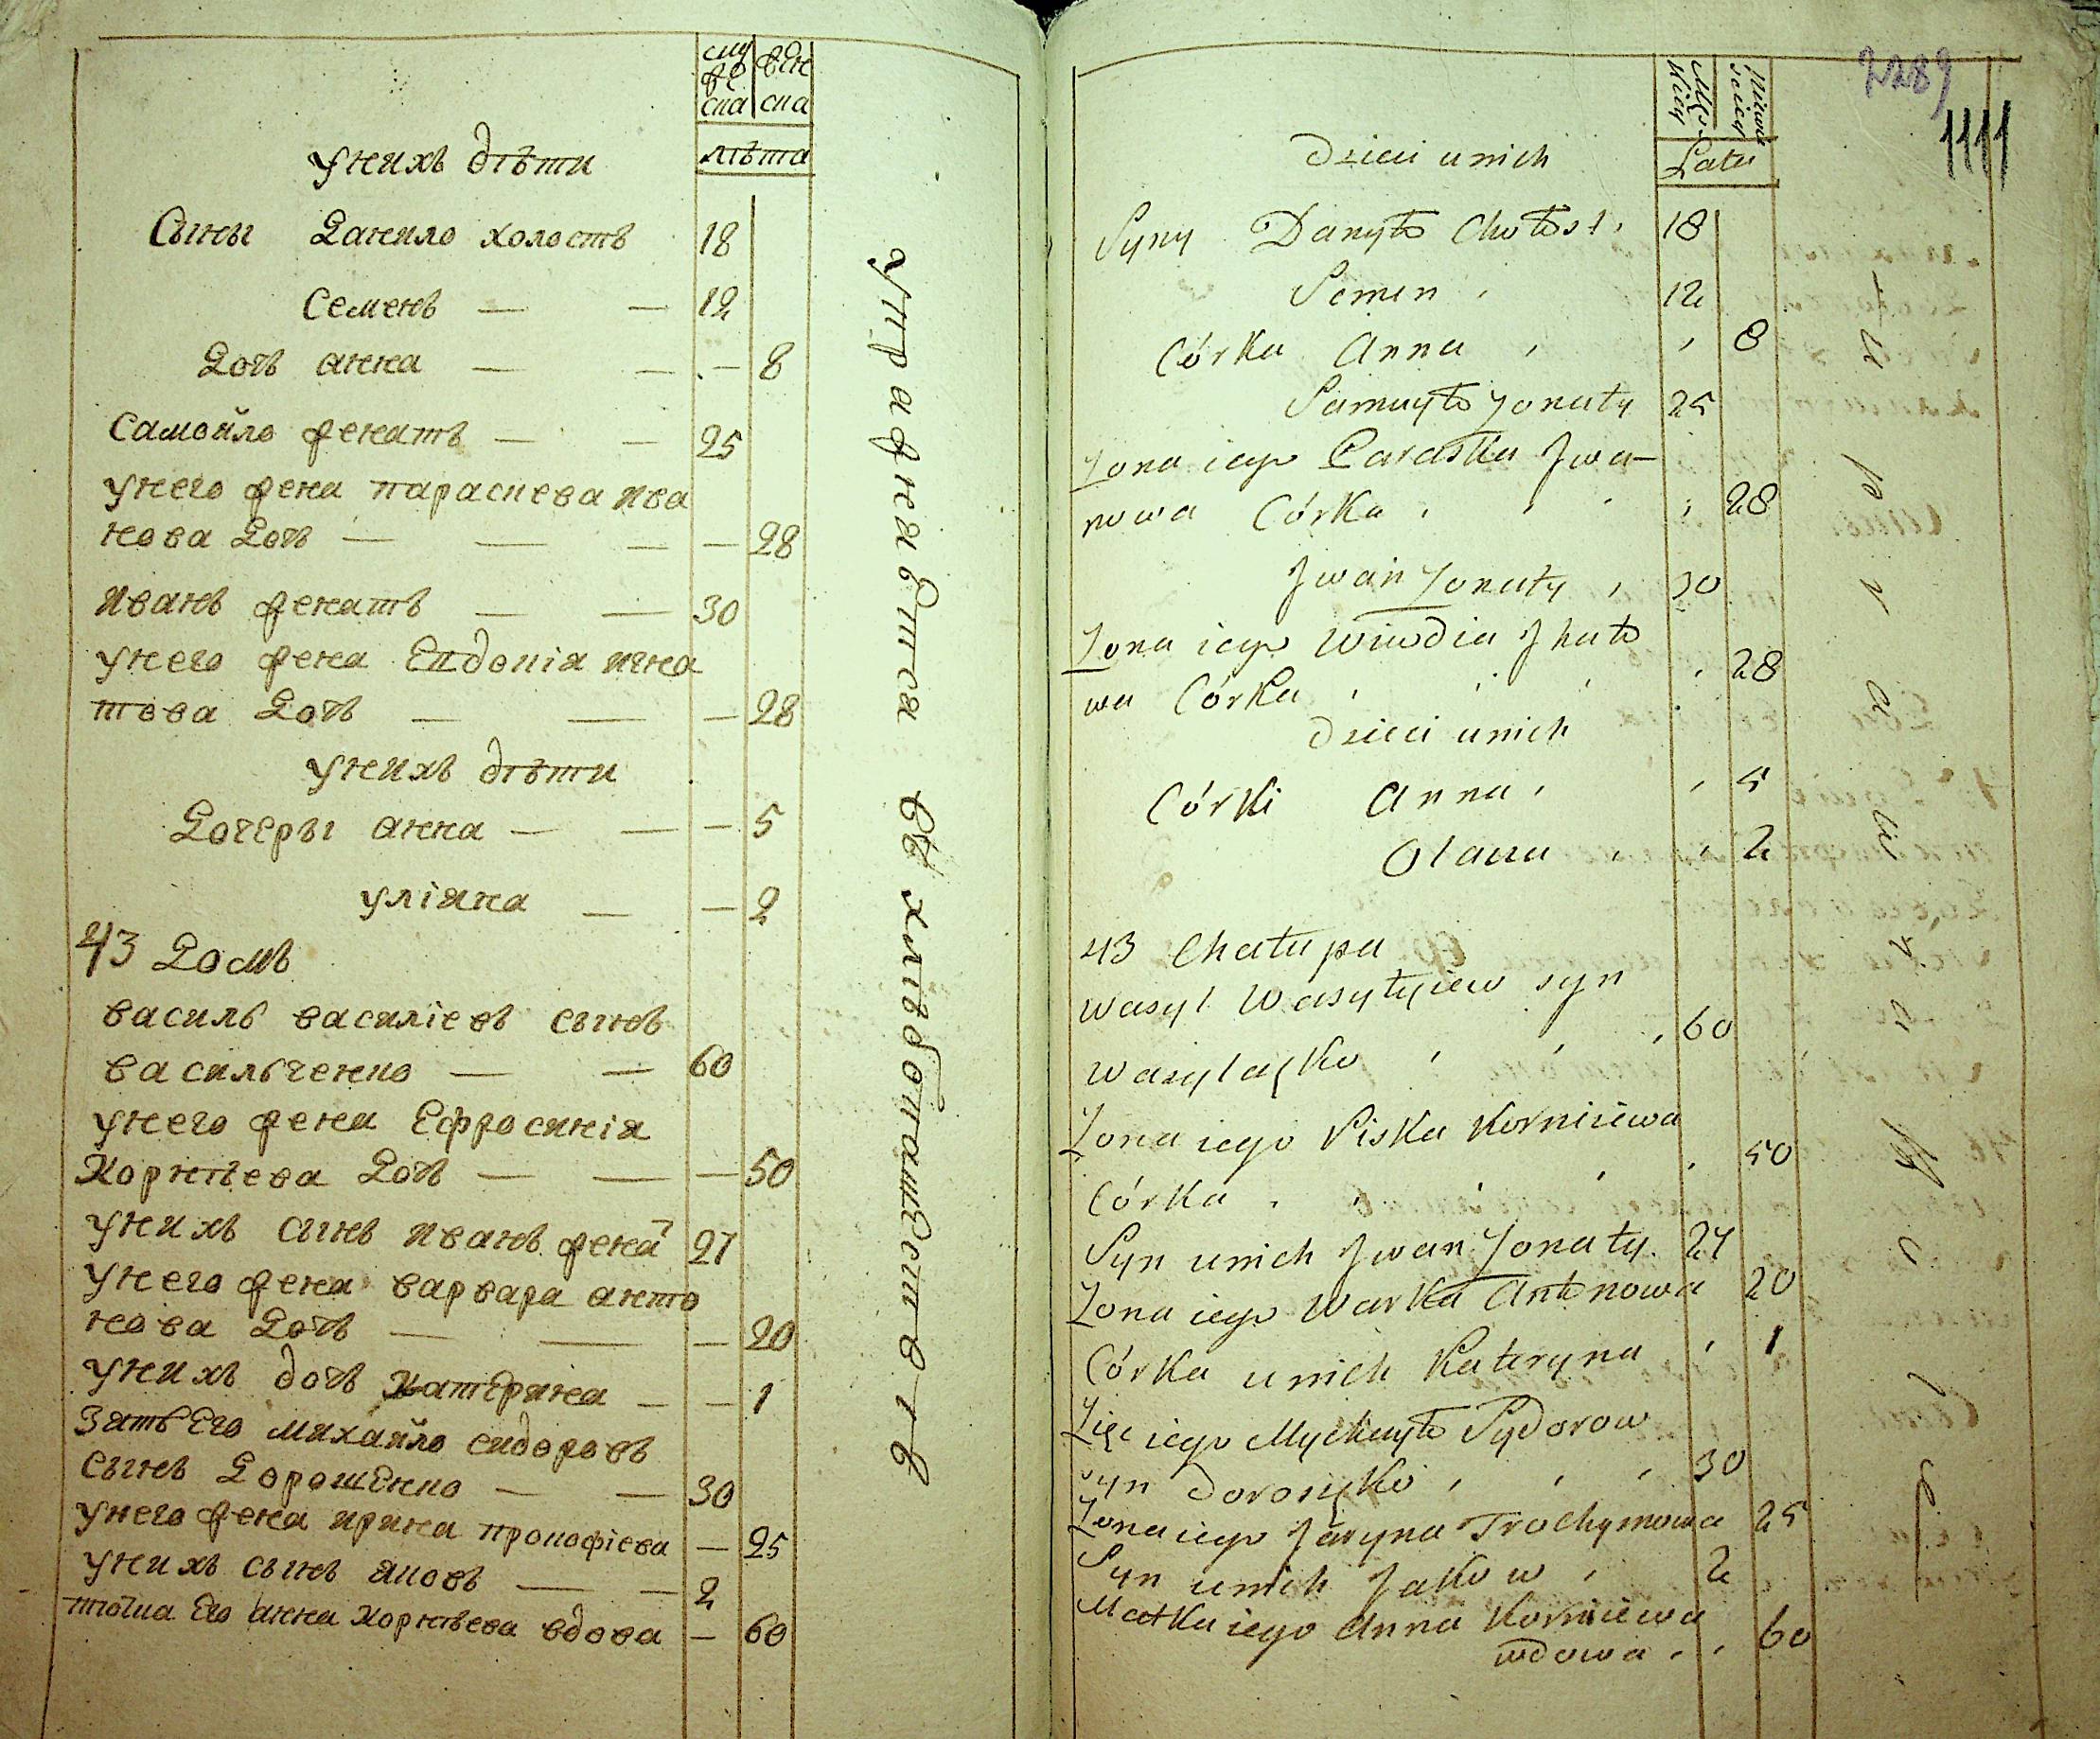 муже
ска
жен
ска
лѣта
у нихъ дѣти
Сыны Данило холостъ 18
Семенъ — — 12
Дочь анна — — — 8
Самойло женатъ — — 25
у него жена параскева ива
нова Дочь — — — — 28
иванъ женатъ — — 30
у него жена Евдокія игна
това Дочь — — — 28
у нихъ дѣти
Дочеры анна — — — 5
уліяна — — 2
43 Домъ
василь василіевъ сынъ
васильченко — — 60
у него жена Ефросинія
Корнѣева Дочь — — — 50
у нихъ сынъ иванъ женат 27
у него жена варвара анто
нова Дочь — — — 20
у нихъ дочь катерина — — 1
зять Его михайло сидоровъ
сынъ Дорошенко — — 30
у него жена ирина прокофіева — 25
у нихъ сынъ яковъ — — 2
тіотка Его анна Корнѣева вдова — 60
упражняется въ хлѣбопашествѣ
2289
1111
Męs
kiey
Niewie
sciey
Lata
Dzieci u nich
Syny Danyło Chołost, 18
Semen , 12
Córka Anna , , 8
Samuyło Żonaty 25
Żona iego Paraska Jwa-
nowa Córka , , , , 28
Jwan Żonaty , 30
Żona iego Wiwdia Jhnato
wa Córka , , , , 28
Dzieci u nich
Córki Anna , , 5
Olana , , 2
43 Chatupa
Wasyl Wasyłyiew syn
Wasylaszko , , , 60
Żona iego Piska Korniiewa
Córka , , , , , 50
Syn u nich Jwan Żonaty. 27
Żona iego Warka Antonowa 20
Córka u nich Kateryna , 1
Zięć iego Mychayło Sydorow
syn Doroszko , , , 30
Żona iego Jaryna Trochymowa 25
Syn u nich Jakow , 2
Matka iego Anna Korniiewa
wdowa , , 60